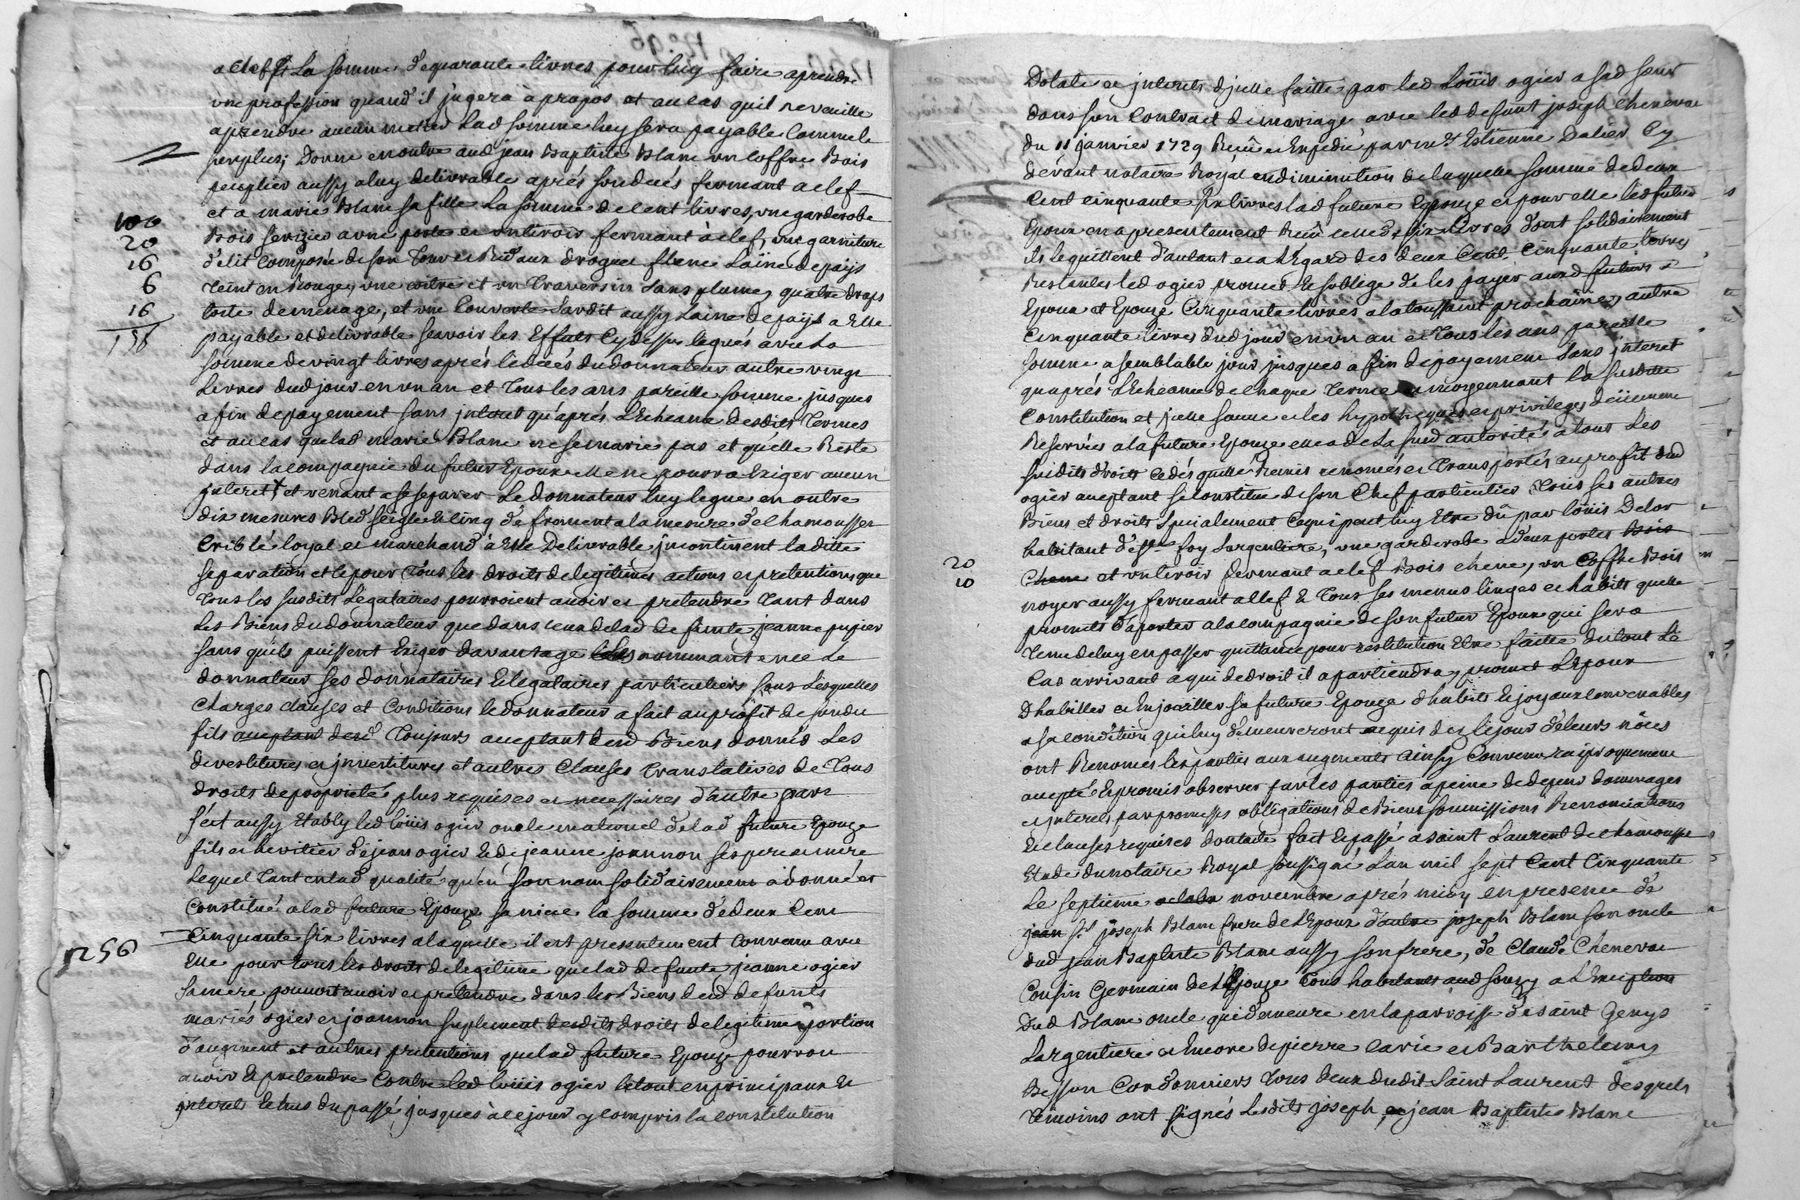 a clef et La somme de quarante livres pour luy faire aprendre
une profession quand il jugera à propos et au cas quil ne veuille
aprendre aucun metier Lad somme luy sera payable Comme le
surplus; Donne en outre aud jean Baptiste Blanc un Coffre Bois
peuplier aussy a luy delivrable aprés son decés fermant a clef
et a marie Blanc sa fille La somme de Cent livres, une garderobe
Bois Serizier a une porte et un tiroir fermant à clef, une garniture
de lit Composée de son Tour et Rideaux droguet fil et Laine de païs
teint en Rouge, une coitre et un Traversin sans plume, quatre draps
toile de menage, et une Couverte Lardit aussy Laine de païs a Elle
payable et delivrable scavoir les Effects Cydessus legués avec La
somme de vingt livres aprés le decés du donnateur autre vingt
Livres dud jour en un an et Tous les ans pareille somme jusques
a fin de payement sans jnteret qu'aprés L'Echeance desdits Termes
et au cas que lad marie Blanc ne se marie pas et quelle Reste
dans la compagnie du futur Epoux elle ne pourra Exiger aucun
jnteret + et venant a se separer Le donnateur luy legue en outre
dix mesures Bled seigle et Cinq de froment a la mesure de Chamousset
Criblé loyal et marchand à Elle Delivrable jncontinent laditte
separation et ce pour Tous les droits de legitimes actions et pretentions que
Tous les susdits Legataires pourroient avoir et pretendre Tant dans
Les Biens du donnateur que dans ceux de lad defunte jeanne pupier
sans quils puissent Exiger davantage nommant en ce Le
donnateur ses donnataires et legataires particuliers sous Lesquelles
Charges clauses et Conditions le donnateur a fait au profit de sondit
fils acceptant desd Toujours acceptant desd Biens donnés Les
devestitures et jnvestitures et autres Clauses Translatives de Tous
droits de proprieté plus requises et necessaires d'autre part
s'est aussy Etably led Loüis ogier oncle maternel de lad future Epouze
fils et heritier de jean ogier et de jeanne joannon ses pere et mere
Lequel Tant en lad qualité qu'en son nom solidairement a donné et
Constitué a lad future Epouze sa niece la somme de deux Cent
Cinquante six livres a laquelle il est presentement Convenu avec
Elle pour tous les droits de legitime que lad defunte jeanne ogier
sa mere pouvoit avoir et pretendre dans les Biens desd defunts
mariés ogier et joannon suplement desdits droits de legitime portion
d'augment et autres pretentions que lad future Epouze pourroit
avoir et pretendre Contre led Loüis ogier le tout en principaux et
jnterets Echus du passé jusques à ce jour y compris la constitution
100
20
16
6
16
158
256
Dotale et jnterets d'jcelle faitte par led Loüis ogier a sad sœur
dans son Contract de mariage avec led defunt joseph Chenevat
du 11 janvier 1729 Reçu et Expedié par me. Estienne Dalier Cy
devant notaire Royal en diminution de laquelle somme de deux
Cent cinquante six livres lad future Epouze et pour elle led futur
Epoux en a presentement Reçu celle de six Livres dont solidairement
ils le quittent d'autant et a l'Egard des deux Cent Cinquante livres
Restantes led ogier promet et s'oblige de les payer auxd futurs
Epoux et Epouze Cinquante livres a la toussaint prochaine, autre
Cinquante livres dud jour en un an et Tous les ans pareille
somme a semblable jour jusques a fin de payement sans jnteret
qu'aprés L'Echeance de chaque Terme moyennant la susditte
Constitution et jcelle sauve et les hypotheques et privileges deüement
Reservés a la future Epouze elle a de La susd autorité a tous Les
susdits droits Cedés quitté Remis renoncés et Transportés au profit dud
ogier acceptant se constitue de son Chef particulier Tous ses autres
Biens et droits specialement Ce qui peut luy Etre dû par Loüis Delor
habitant de ste foy Largentiere, une garderobe a deux portes Bois
Chene et un tiroir fermant a clef Bois chene, un Coffre Bois
noyer aussy fermant a Clef et Tous ses menus linges et habits quelle
promet d'aporter a la compagnie de son futur Epoux qui sera
Tenu de luy en passer quittance pour restitution Etre faitte du tout Le
Cas arrivant a qui de droit il apartiendra, promet L'Epoux
D'habiller et Enjoailler sa future Epouze d'habits et joyaux Convenables
a sa condition qui luy demeureront acquis dez le jour de leurs nôces
ont Renoncés les parties aux augments ainsy Convenu reciproquement
accepté Et promis observer par les parties a peine de depens dommages
et jnterets par promesses obligations de Biens soumissions Renonciations
et clauses requises dont acte fait Et passé a saint Laurent de chamousset
Etude du notaire Royal soussigné L'an mil sept Cent Cinquante
Le septieme octobre novembre aprés midy en presence de
jean Sr. joseph Blanc frere de L'Epoux d'autre joseph Blanc son oncle
dud jean Baptiste Blanc aussy son frere, de Claude Chenevat
Cousin Germain de L'Epouze Tous habitants aud souzy a L'Exception
Dud Blanc oncle qui demeure en la parroisse de saint Genys
Largentiere et Encore de pierre Carié et Barthelemy
Besson Cordonniers Tous deux dudit Saint Laurent desquels
Temoins ont signés Lesdits joseph, et jean Baptiste Blanc
20
10